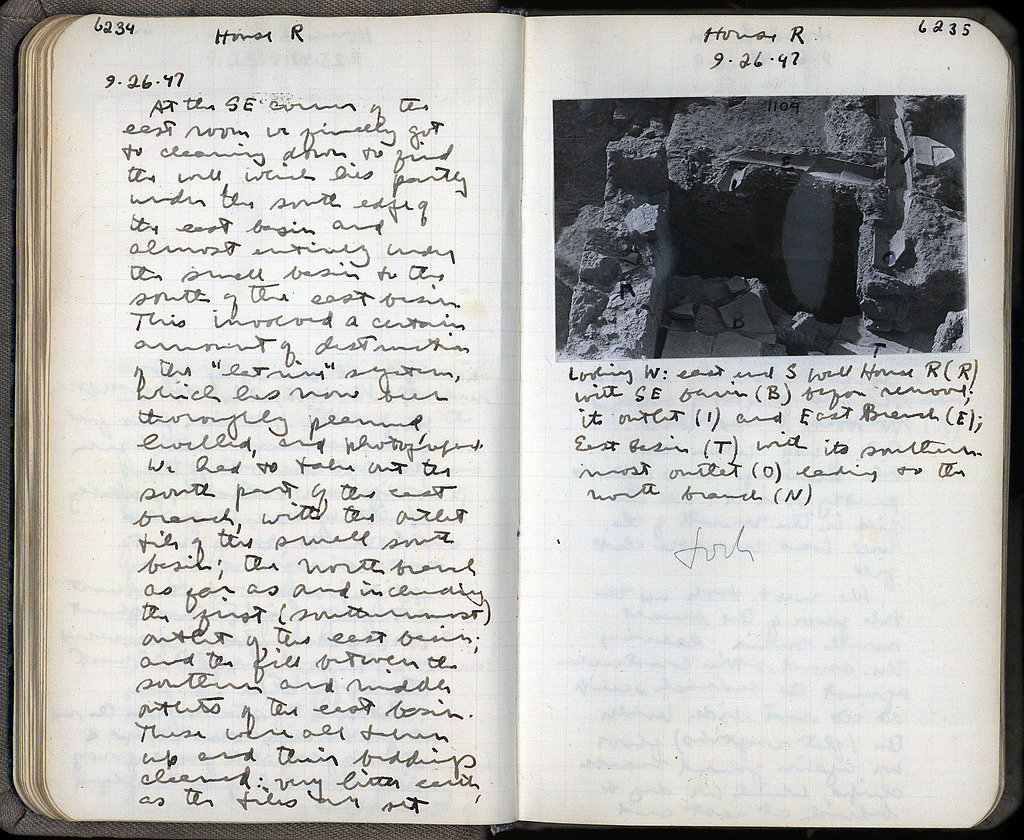 6234
House R
9·26·47
At the SE corner of the
east room we finally got
to cleaning down to find
the well which lies partly
under the south edge of
the east basin and
almost entirely under
the small basin to the
south of the east basin.
This involved a certain
amount of destruction
of the "latrine" system,
which has now been
thoroughly planned,
levelled, and photographed.
We had to take out the
south part of the east
branch, with the outlet
tile of the small south
basin; the north branch
as far as and including
the first (southernmost)
outlet of the east basin;
and the fill between the
southern and middle
outlets of the east basin.
These were all taken
up and their beddings
cleaned: very little earth,
as the tiles are set
6235
House R
9·26·47
1109
E
N
O
A
B
T
Looking W: east end S wall House R (R)
with SE basin (B) before removal;
its outlet (I) and East Branch (E);
East basin (T) with its southern-
most outlet (O) leading to the
north branch (N)